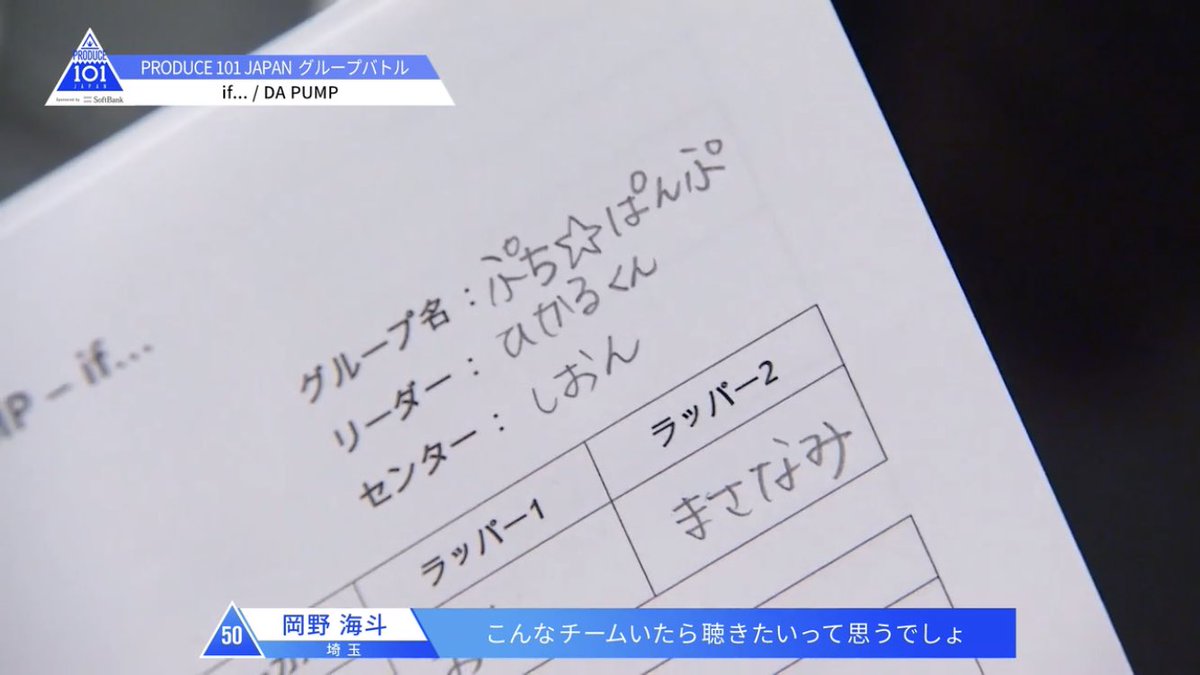 PRODUCE
101
JAPAN
Sponsored by SoftBank
PRODUCE 101 JAPAN グループバトル
if... / DA PUMP
MP – if...
グループ名：ぷち☆ぱんぷ
リーダー：ひかるくん
センター：しおん
ラッパー1
ラッパー2
まさなみ
50
岡野 海斗
埼玉
こんなチームいたら聴きたいって思うでしょ